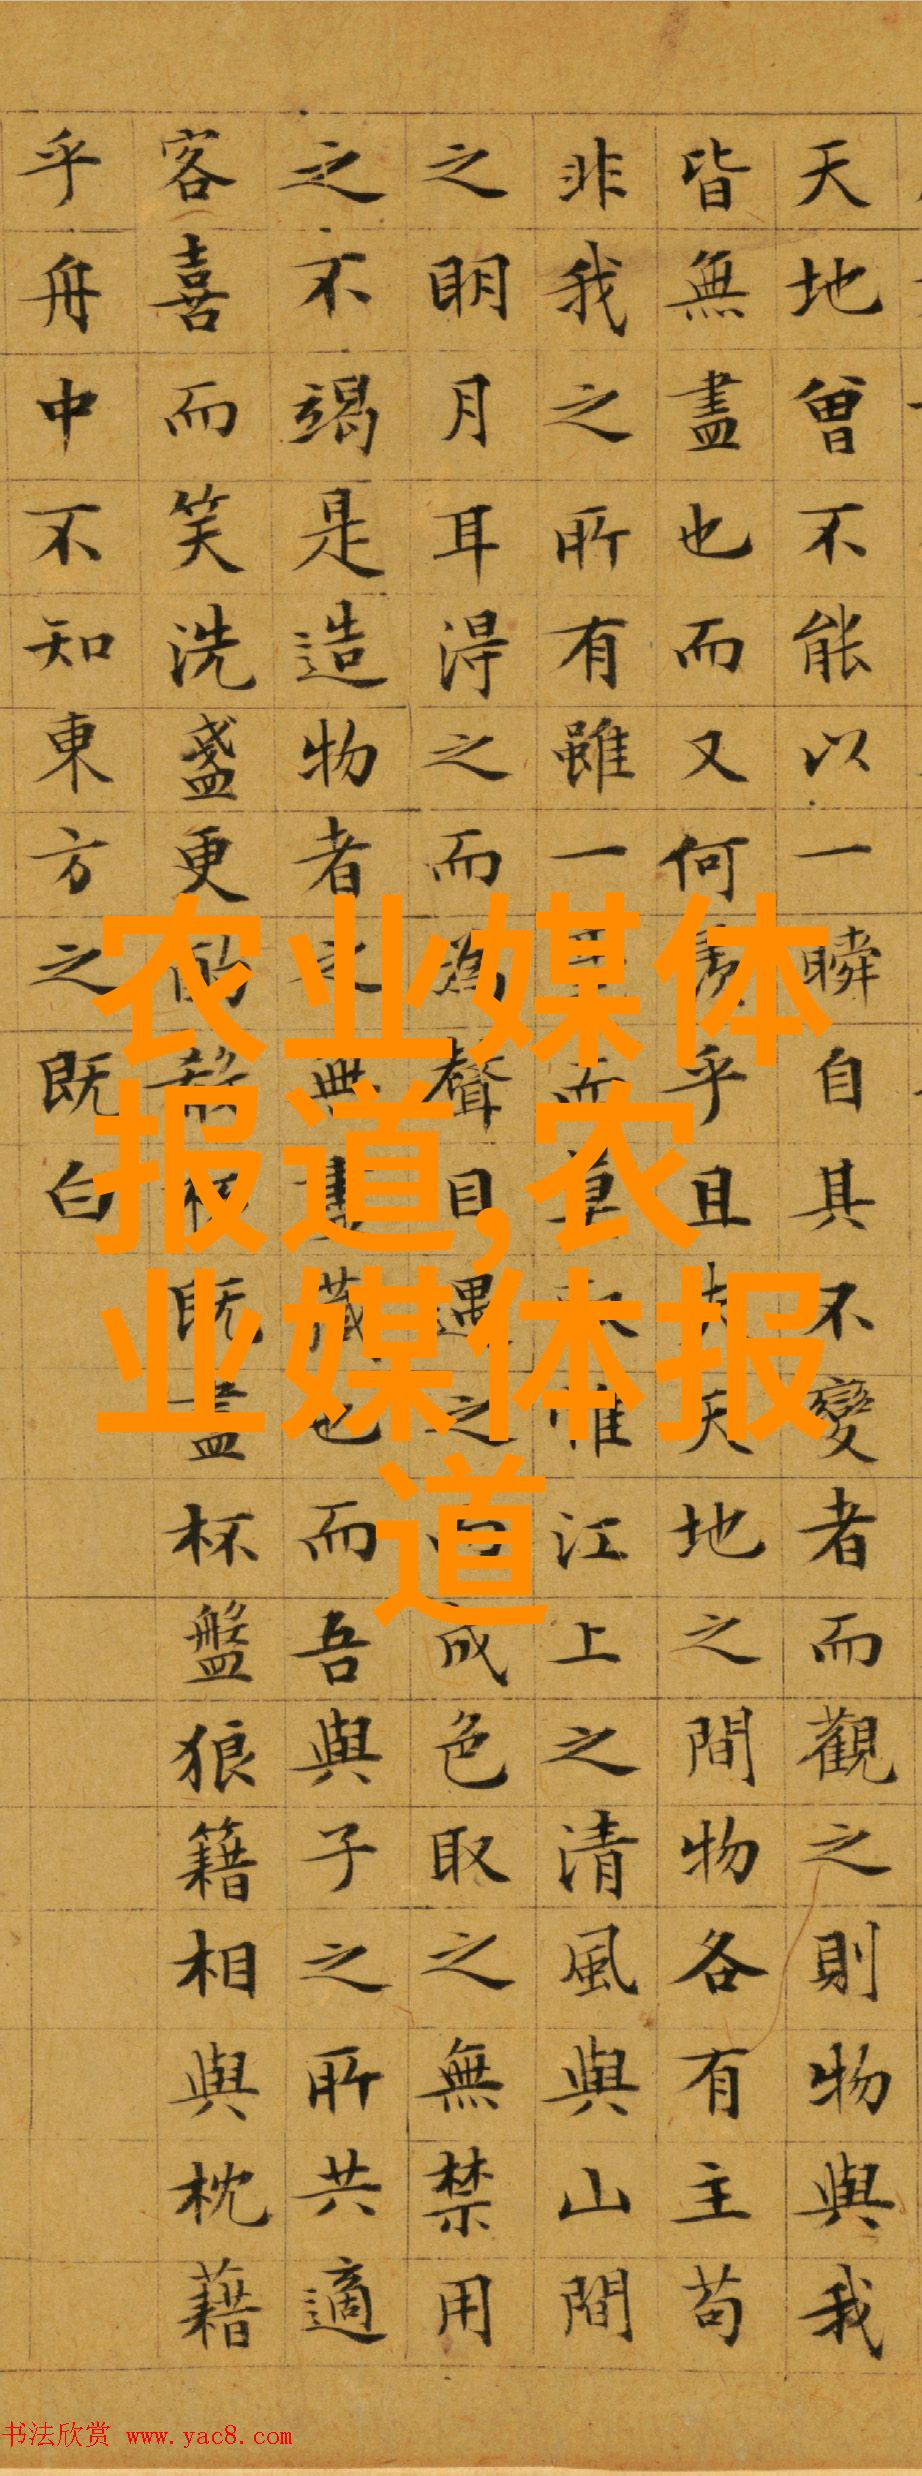 天地曾不能以一瞬自具不變者而觀之則物與我
皆無盡也而又何羨乎且夫天地之間物各有主苟
非我之所有雖一而惟江上之清風與山間
之明月耳淂之而為聲目遇之而成色取之無禁用
之不竭是造物者之無盡藏也而吾與子之所共適
客喜而笑洗盞更酌既盡杯盤狼籍相與枕藉
乎舟中不知東方之既白
农业媒体
报道,农
业媒体报
道
书法欣赏 www.yac8.com